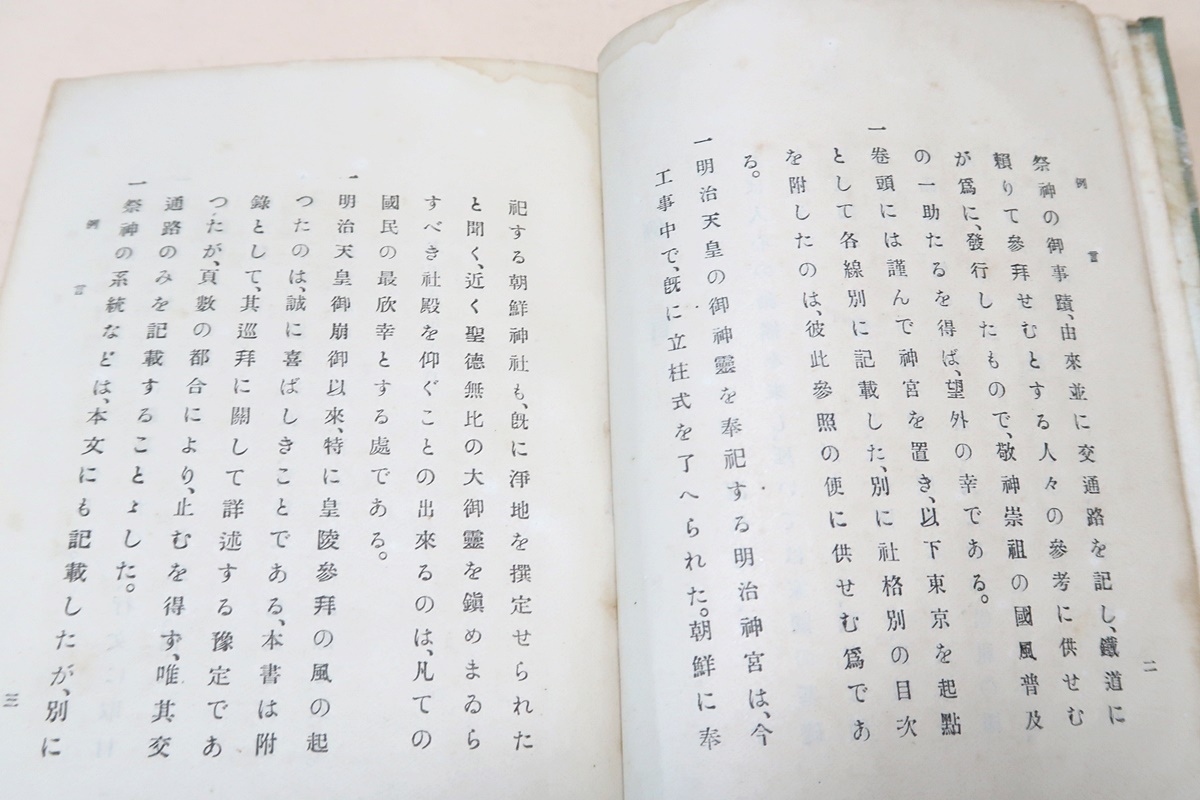 例言
二
祭神の御事蹟、由來並に交通路を記し、鐵道に
賴りて參拜せむとする人々の參考に供せむ
が爲に、發行したもので、敬神崇祖の國風普及
の一助たるを得ば、望外の幸である。
一卷頭には謹んで神宮を置き、以下東京を起點
として各線別に記載した、別に社格別の目次
を附したのは、彼此參照の便に供せむ爲であ
る。
一明治天皇の御神靈を奉祀する明治神宮は、今
工事中で、既に立柱式を了へられた。朝鮮に奉
祀する朝鮮神社も、既に淨地を撰定せられた
と聞く、近く聖德無比の大御靈を鎭めまゐら
すべき社殿を仰ぐことの出來るのは、凡ての
國民の最欣幸とする處である。
一明治天皇御崩御以來、特に皇陵參拜の風の起
つたのは、誠に喜ばしきことである、本書は附
錄として、其巡拜に關して詳述する豫定であ
つたが、頁數の都合により、止むを得ず、唯其交
通路のみを記載することゝした。
一祭神の系統などは、本文にも記載したが、別に
例言
三